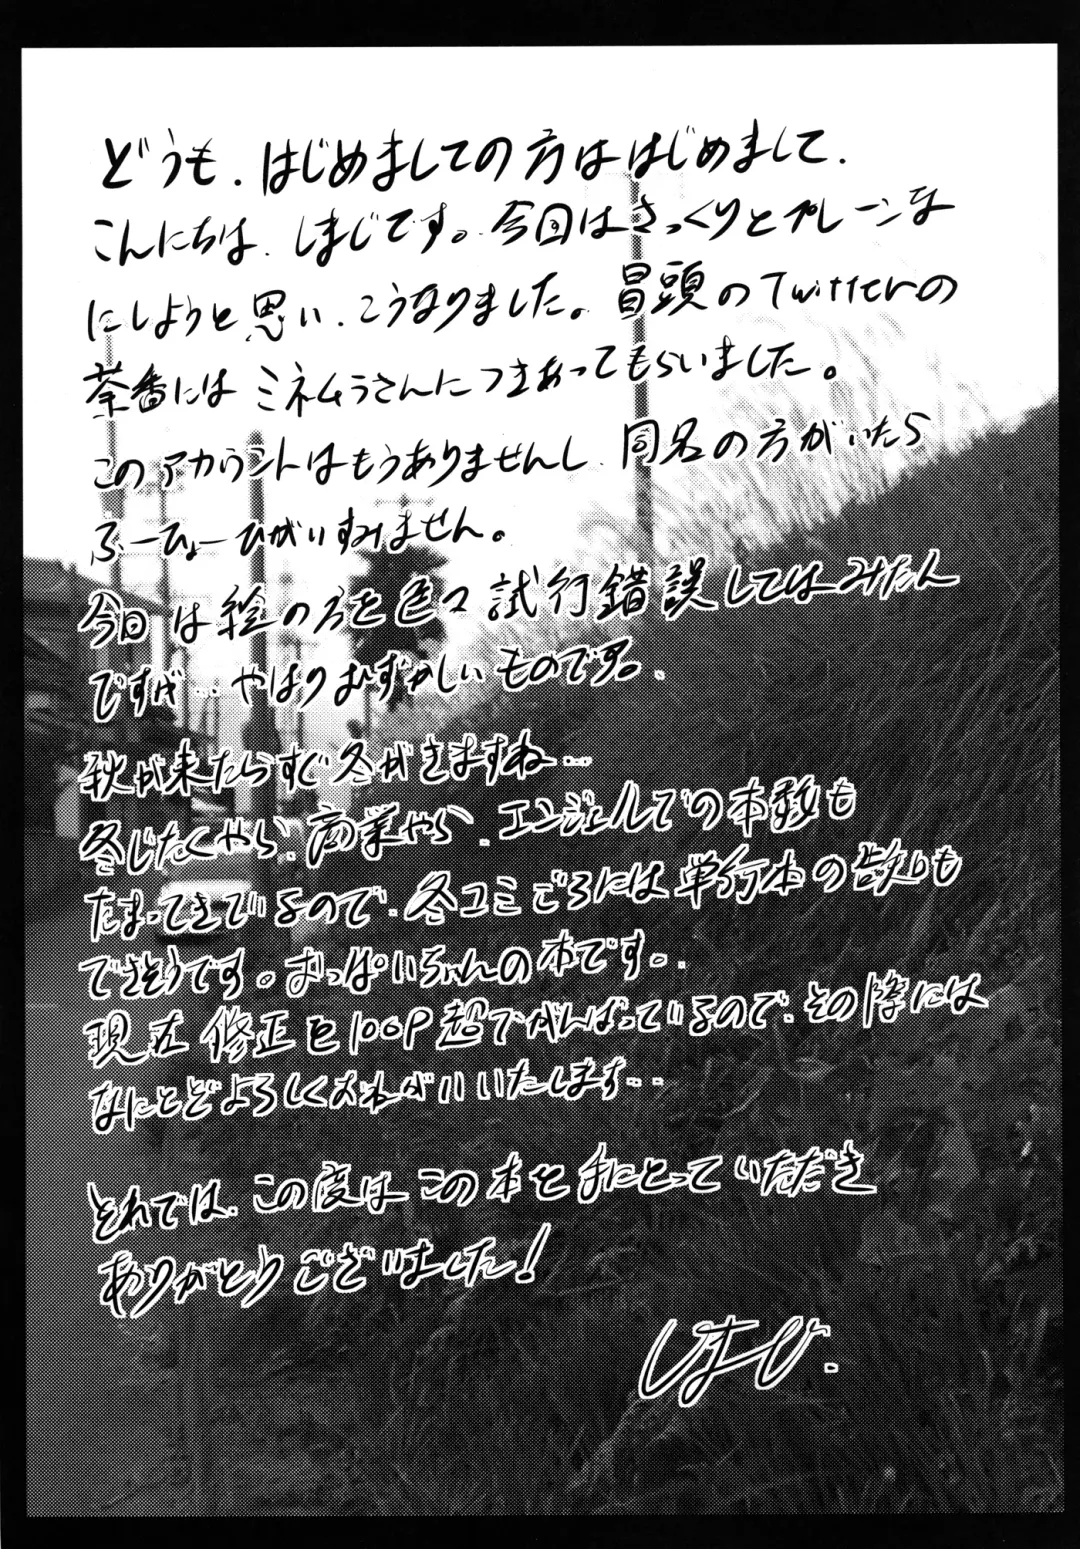 どうも、はじめましての方ははじめまして、
こんにちは、しまじです。今回はさっくりとプレーンな
にしようと思い、こうなりました。冒頭のTwitterの
茶番にはミネムラさんにつきあってもらいました。
このアカウントはもうありませんし、同名の方がいたら
ふーひょーひがいすみません。
今回は絵の方を色々試行錯誤してはみたん
ですが…やはりむずかしいものです。.
秋が来たらすぐ冬がきますね…
冬じたくやら、商業やら、エンジェルでの本数も
たまってきているので、冬コミごろには単行本の告知も
できそうです。おっぱいちゃんの本です。.
現在修正を100P超でがんばっているので、その際には
なにとどよろしくおねがいいたします..
それでは、この度はこの本を手にとっていただき
ありがとうございました!
しまじ.